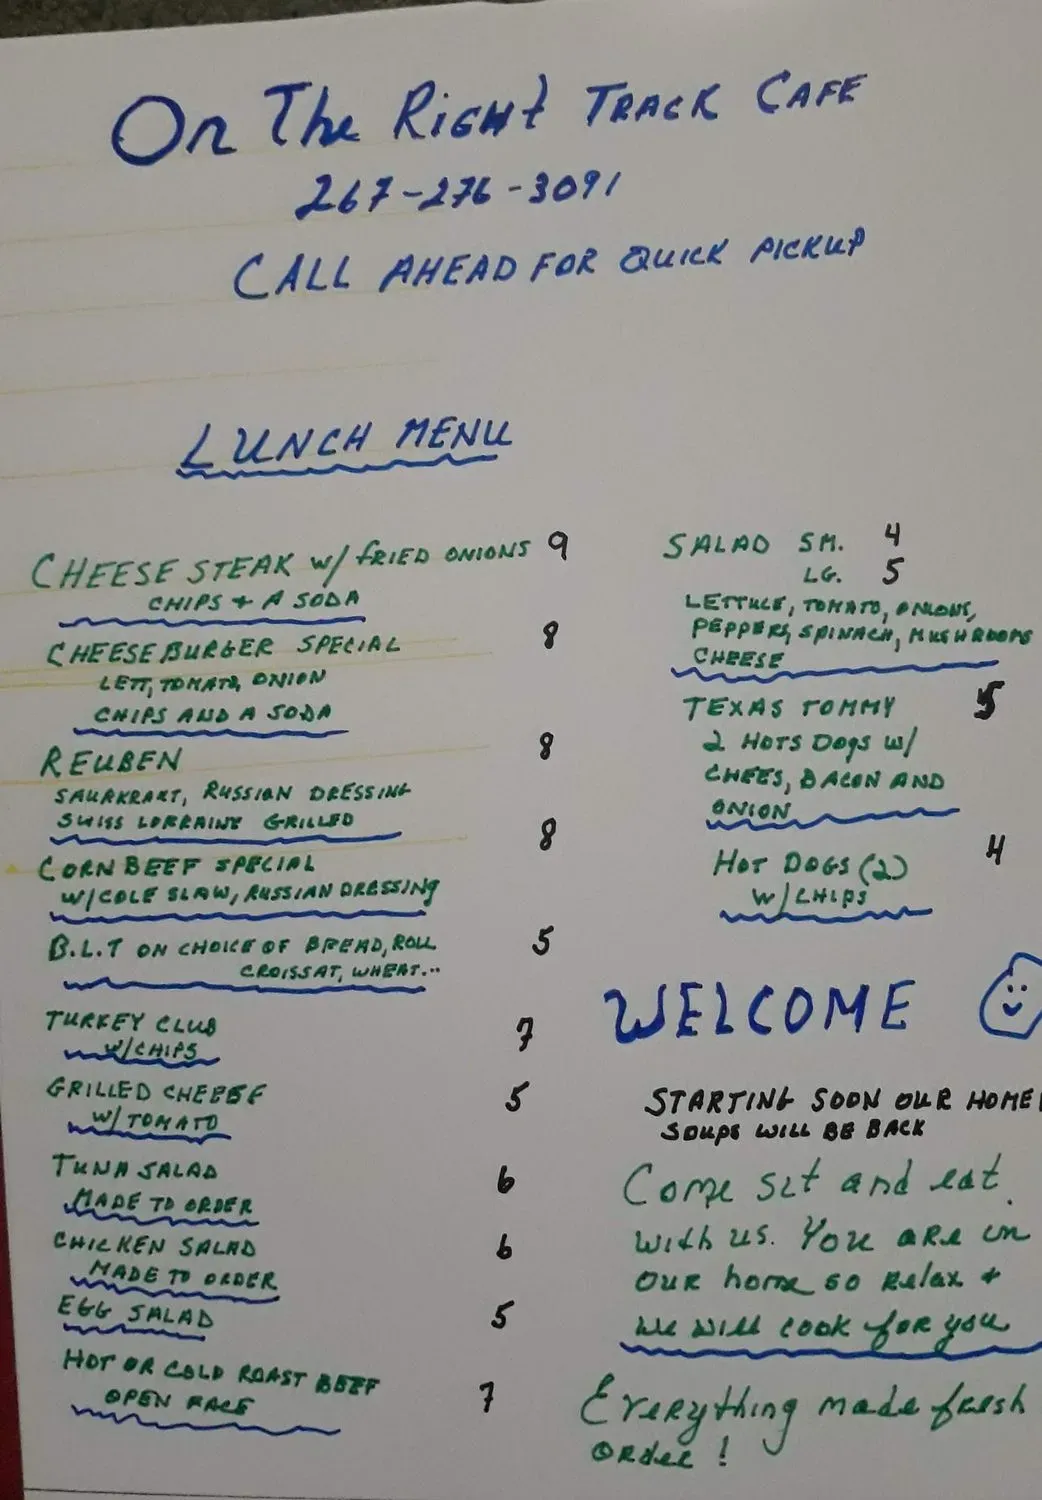 On The Right TRACK CAFE
267-276-3091
CALL AHEAD FOR QUICK PICKUP
LUNCH MENU
CHEESE STEAK W/ FRIED ONIONS 9
CHIPS + A SODA
CHEESEBURGER SPECIAL 8
LETT, TOMATO, ONION
CHIPS AND A SODA
REUBEN 8
SAUAKRART, RUSSIAN DRESSING
SWISS LORRAINE GRILLED
CORN BEEF SPECIAL 8
W/COLE SLAW, RUSSIAN DRESSING
B.L.T ON CHOICE OF BREAD, ROLL 5
CROISSAT, WHEAT...
TURKEY CLUB 7
W/CHIPS
GRILLED CHEESE 5
W/ TOMATO
TUNA SALAD 6
MADE TO ORDER
CHICKEN SALAD 6
MADE TO ORDER
EGG SALAD 5
HOT OR COLD ROAST BEEF 7
OPEN FACE
SALAD SM. 4
LG. 5
LETTUCE, TOMATO, ONIONS,
PEPPERS, SPINACH, MUSHROOMS
CHEESE
TEXAS TOMMY 5
2 HOTS DOGS W/
CHEES, BACON AND
ONION
HOT DOGS (2) 4
W/CHIPS
WELCOME
STARTING SOON OUR HOME
SOUPS WILL BE BACK
Come sit and eat
with us. You are in
our home so relax +
we will cook for you
Everything made fresh
order!